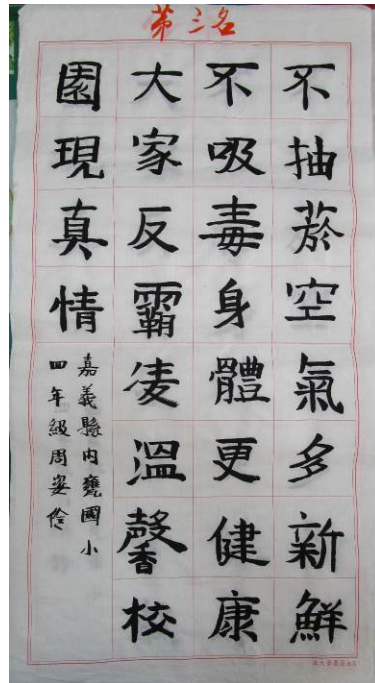 第三名
不抽菸空氣多新鮮
不吸毒身體更健康
大家反霸凌溫馨校
園現真情
嘉義縣內甕國小
四年級周姿伶